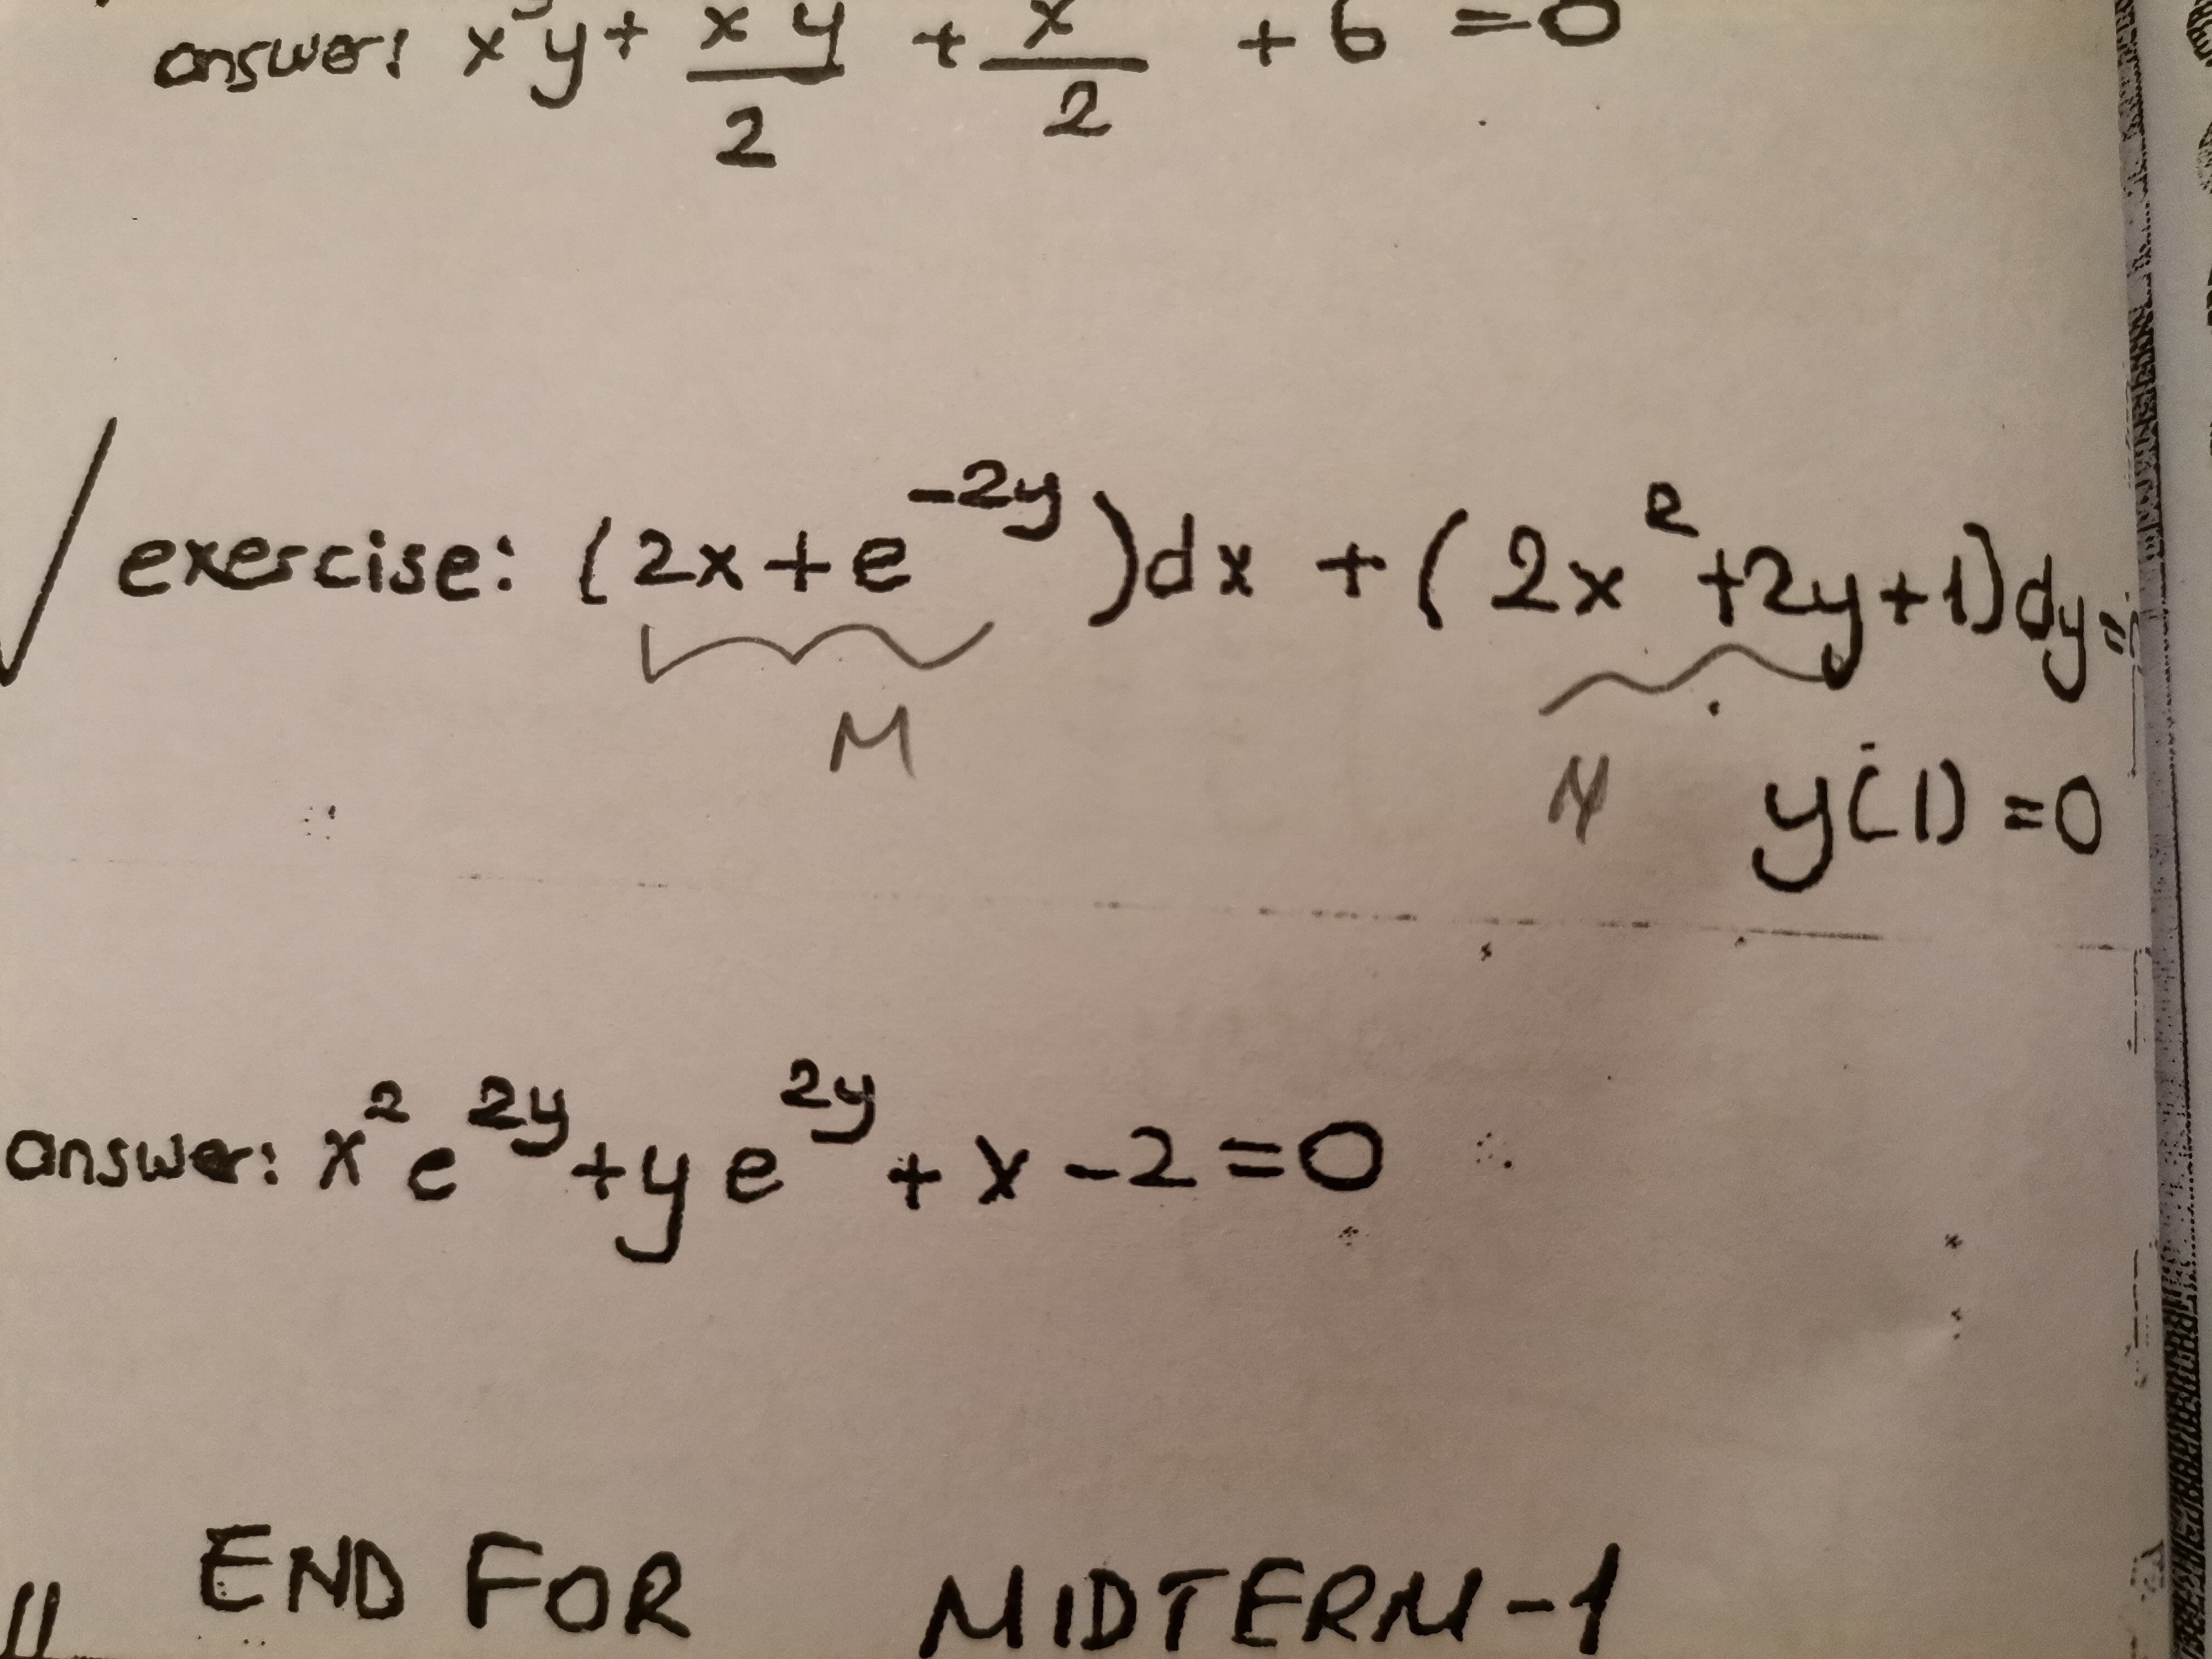 answer: x³y + xy/2 + x/2 + 6 = 0
exercise: (2x+e^-2y)dx + (2x²+2y+1)dy=
M N y(1)=0
answer: x²e^2y + ye^2y + x - 2 = 0
END FOR MIDTERM-1